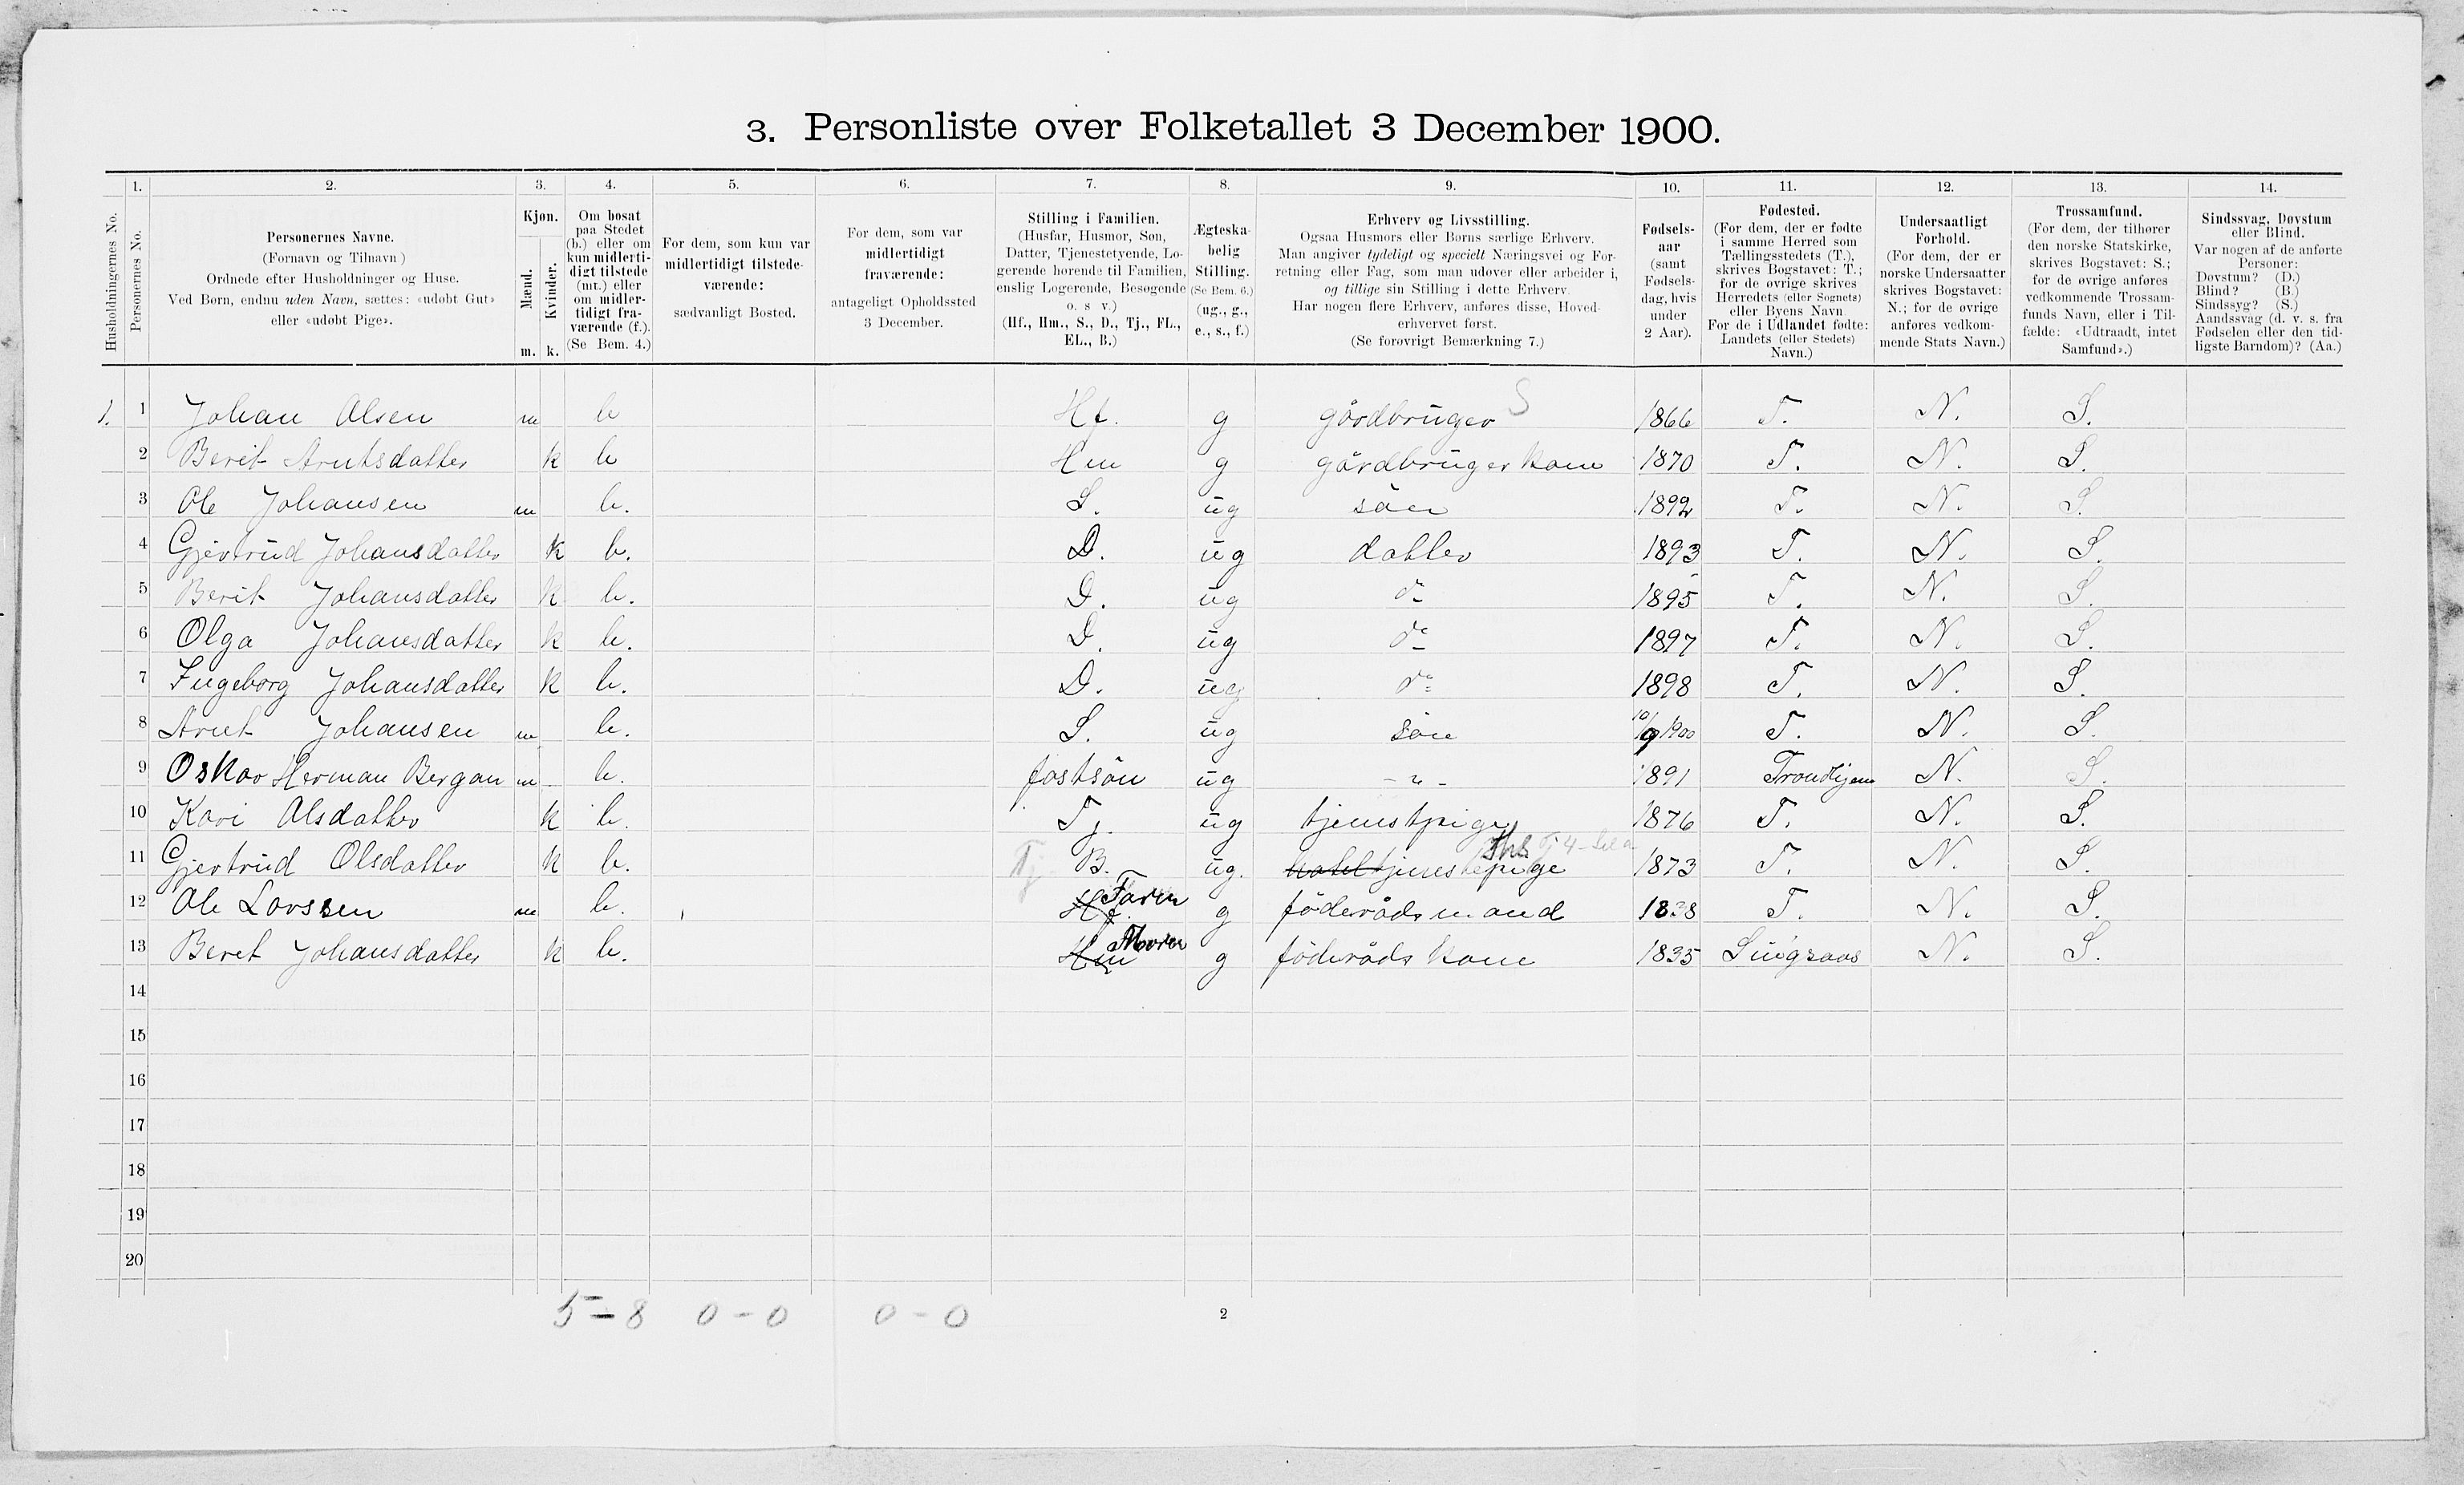 3. Personliste over Folketallet 3 December 1900.
1. 2. 3. 4. 5. 6. 7. 8. 9. 10. 11. 12. 13. 14.
Husholdningernes No.
Personernes No.
Personernes Navne.
(Fornavn og Tilnavn)
Ordnede efter Husholdninger og Huse.
Ved Børn, endnu uden Navn, sættes: «udøbt Gut»
eller «udøbt Pige».
Kjøn.
Mænd.
Kvinder.
m. k.
Om bosat
paa Stedet
(b.) eller om
kun midlerti-
digt tilstede
(mt.) eller
om midler-
tidigt fra-
værende (f.).
(Se Bem. 4.)
For dem, som kun var
midlertidigt tilstede-
værende:
sædvanligt Bosted.
For dem, som var
midlertidigt
fraværende:
antageligt Opholdssted
3 December.
Stilling i Familien.
(Husfar, Husmor, Søn,
Datter, Tjenestetyende, Lo-
gerende hørende til Familien,
enslig Logerende, Besøgende
o. s v.)
(Hf., Hm., S., D., Tj., FL.,
EL., B.)
Ægteska-
belig
Stilling.
(Se Bem. 6.)
(ug., g.,
e., s., f.)
Erhverv og Livsstilling.
Ogsaa Husmors eller Børns særlige Erhverv.
Man angiver tydeligt og specielt Næringsvei og For-
retning eller Fag, som man udøver eller arbeider i,
og tillige sin Stilling i dette Erhverv.
Har nogen flere Erhverv, anføres disse, Hoved-
erhvervet først.
(Se forøvrigt Bemærkning 7.)
Fødsels-
aar
(samt
Fødsels-
dag, hvis
under
2 Aar).
Fødested.
(For dem, der er fødte
i samme Herred som
Tællingsstedets (T.),
skrives Bogstavet: T.;
for de øvrige skrives
Herredets (eller Sognets)
eller Byens Navn.
For de i Udlandet fødte:
Landets (eller Stedets)
Navn.)
Undersaatligt
Forhold.
(For dem, der er
norske Undersaatter
skrives Bogstavet:
N.; for de øvrige
anføres vedkom-
mende Stats Navn.)
Trossamfund.
(For dem, der tilhører
den norske Statskirke,
skrives Bogstavet: S.;
for de øvrige anføres
vedkommende Trossam-
funds Navn, eller i Til-
fælde: «Udtraadt, intet
Samfund».)
Sindssvag, Døvstum
eller Blind.
Var nogen af de anførte
Personer:
Døvstum? (D.)
Blind? (B.)
Sindssyg? (S.)
Aandssvag (d. v. s. fra
Fødselen eller den tid-
ligste Barndom)? (Aa.)
1. 1 Johan Olsen m b Hf. g gårdbruger S 1866 T. N. S.
2 Berit Arntsdatter k b Hm g gårdbruger kone 1870 T. N. S.
3 Ole Johansen m b. S. ug søn 1892 T. N. S.
4 Gjertrud Johansdatter k b. D. ug datter 1893 T. N. S.
5 Berit Johansdatter k b. D. ug do 1895 T. N. S.
6 Olga Johansdatter k b. D. ug do 1897 T. N. S.
7 Ingeborg Johansdatter k b. D. ug do 1898 T. N. S.
8 Arnt Johansen m b. S. ug søn 10/9 1900 T. N. S.
9 Oskar Herman Bergan m b. fostsøn ug - " - 1891 Trondhjem N. S.
10 Kari Olsdatter k b. Tj. ug tjenstpige 1876 T. N. S.
11 Gjertrud Olsdatter k b. Tj B. ug. tjenstepige 1873 T. N. S.
12 Ole Larssen m b. Hf. Faren g føderåds mand 1838 T. N. S.
13 Beret Johansdatter k b. Hm Moren g føderåds kone 1835 Singsaas N. S.
14
15
16
17
18
19
20
5 - 8 0 - 0 0 - 0 2